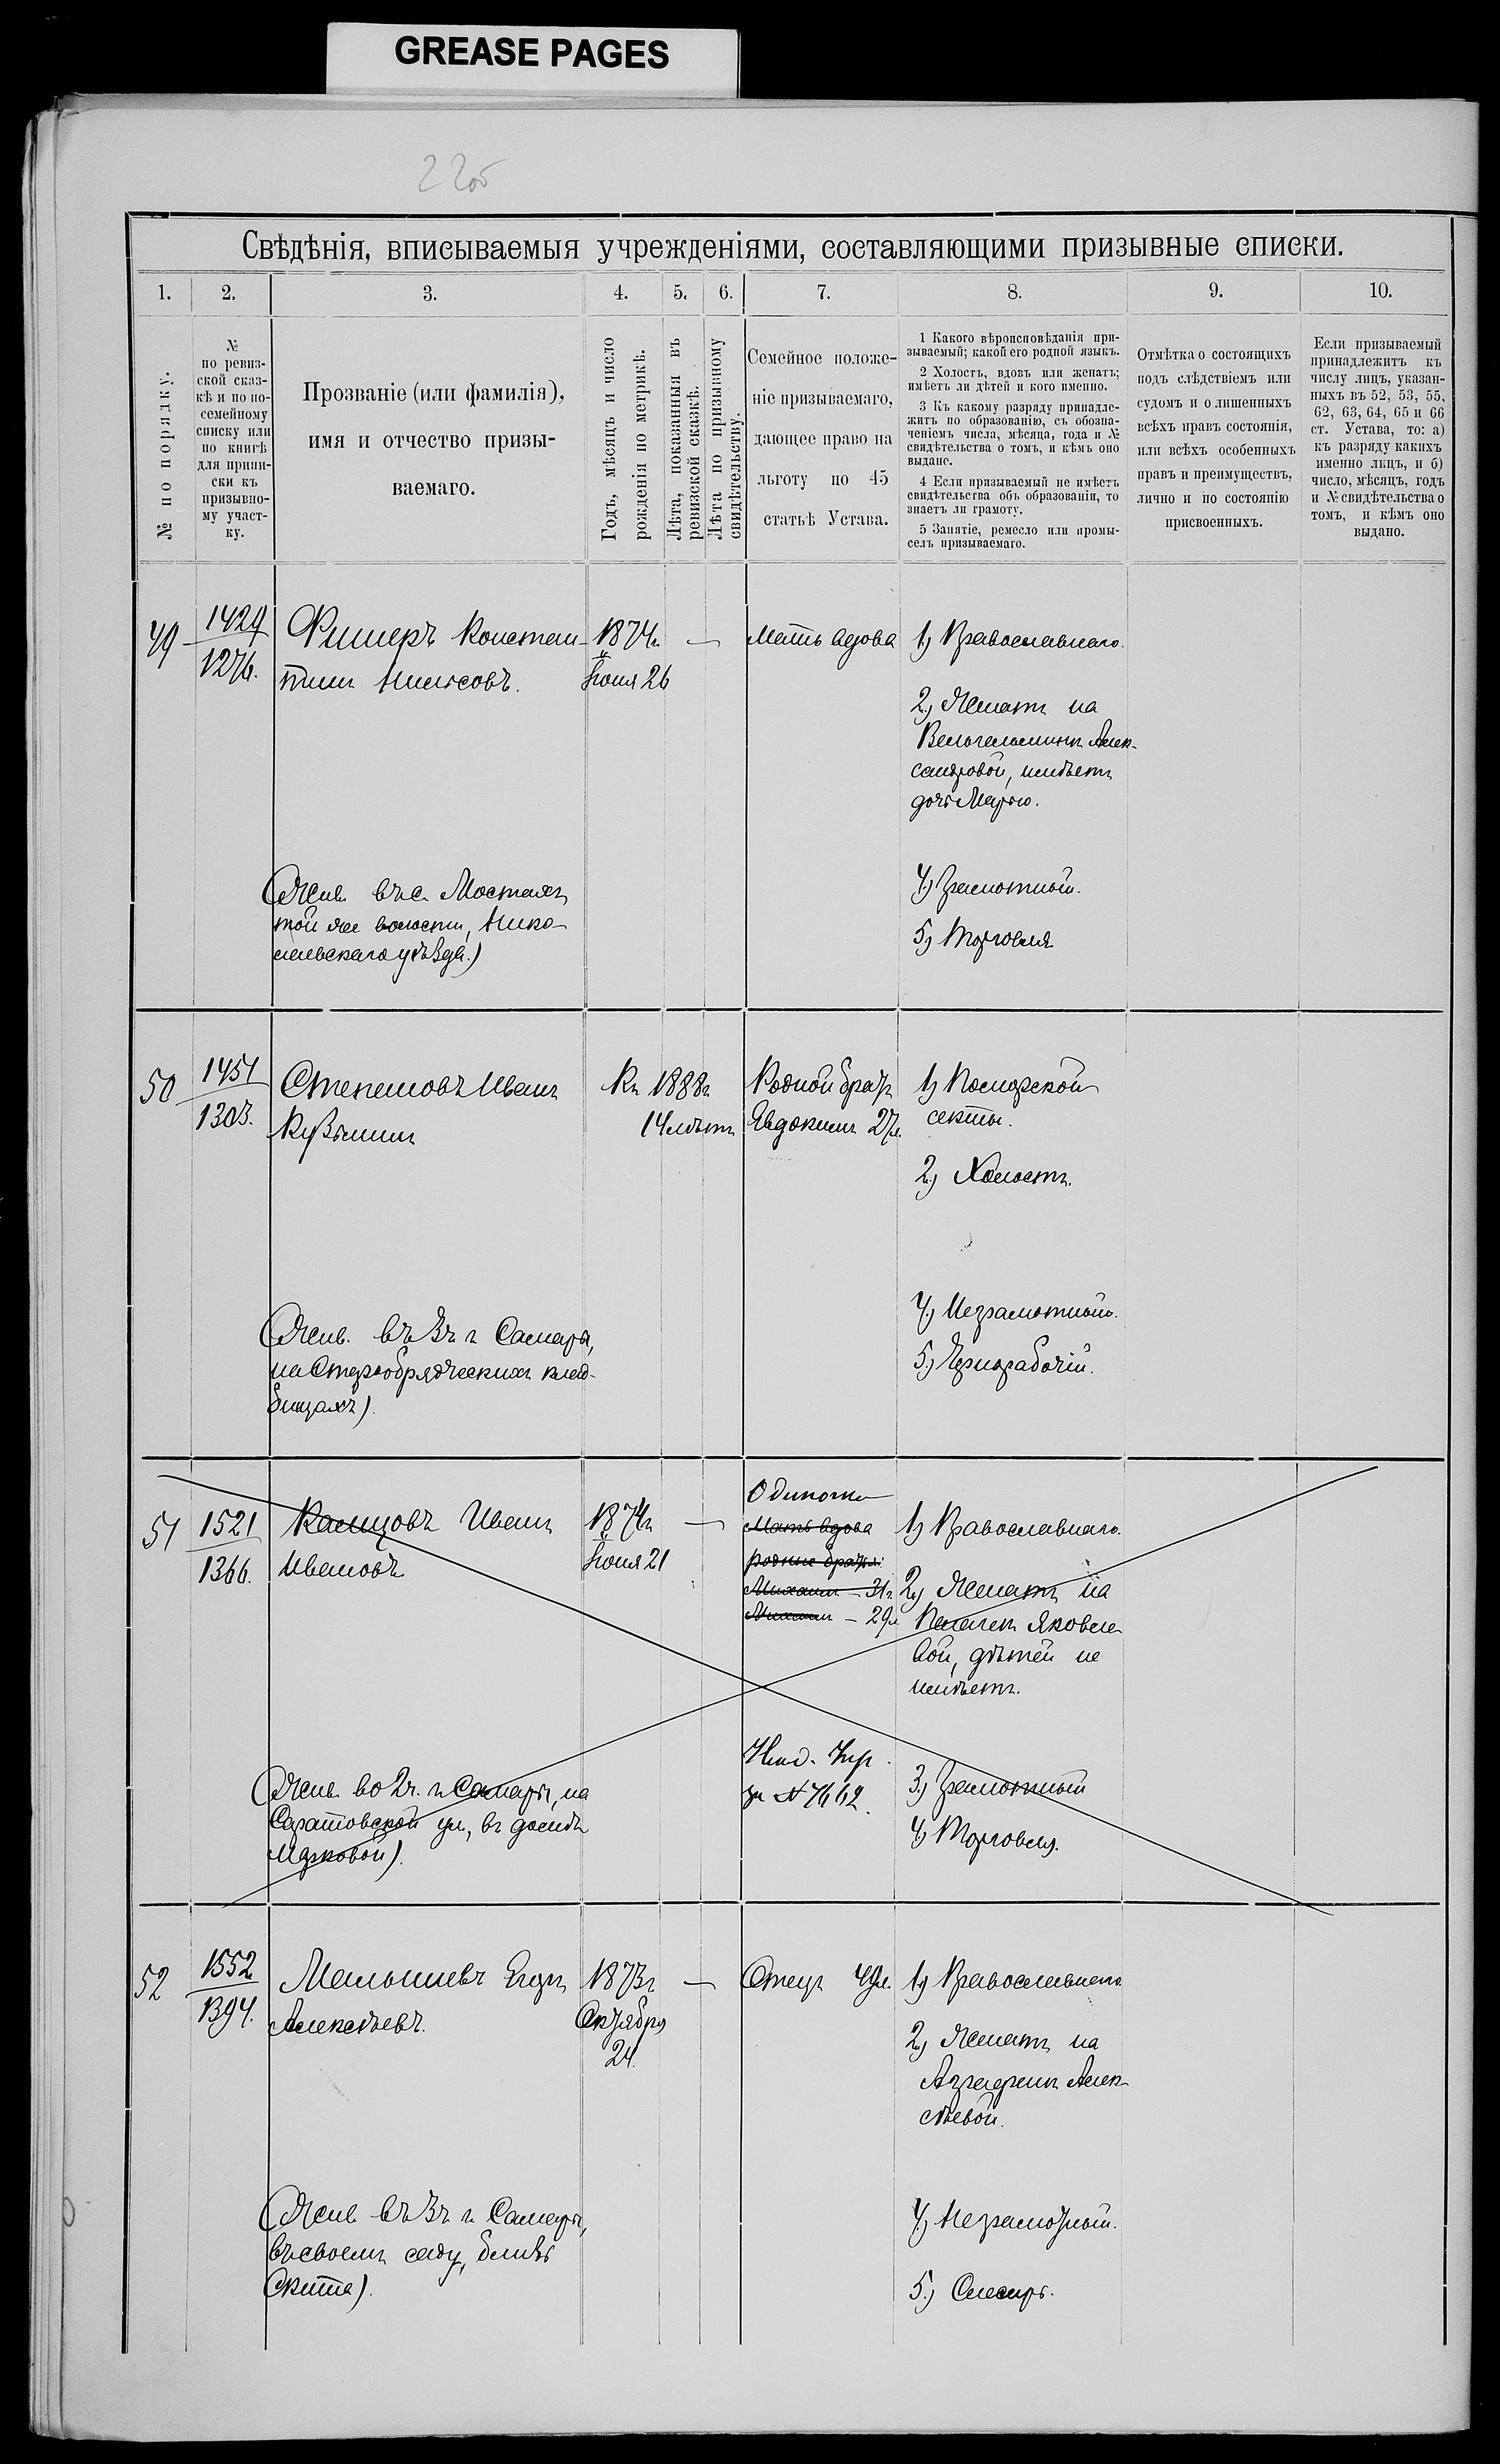 GREASE PAGES
22об
Свѣдѣнія, вписываемыя учрежденіями, составляющими призывные списки.
1. 2. 3. 4. 5. 6. 7. 8. 9. 10.
№ по порядку.
№
по ревиз-
ской сказ-
кѣ и по по-
семейному
списку или
по книгѣ
для припи-
ски къ
призывно-
му участ-
ку.
Прозваніе (или фамилія),
имя и отчество призы-
ваемаго.
Годъ, мѣсяцъ и число
рожденія по метрикѣ.
Лѣта, показанныя въ
ревизской сказкѣ.
Лѣта по призывному
свидѣтельству.
Семейное положе-
ніе призываемаго,
дающее право на
льготу по 45
статьѣ Устава.
1 Какого вѣроисповѣданія при-
зываемый; какой его родной языкъ.
2 Холостъ, вдовъ или женатъ;
имѣетъ ли дѣтей и кого именно.
3 Къ какому разряду принадле-
житъ по образованію, съ обозна-
ченіемъ числа, мѣсяца, года и №
свидѣтельства о томъ, и кѣмъ оно
выдано.
4 Если призываемый не имѣетъ
свидѣтельства объ образованіи, то
знаетъ ли грамоту.
5 Занятіе, ремесло или промы-
селъ призываемаго.
Отмѣтка о состоящихъ
подъ слѣдствіемъ или
судомъ и о лишенныхъ
всѣхъ правъ состоянія,
или всѣхъ особенныхъ
правъ и преимуществъ,
лично и по состоянію
присвоенныхъ.
Если призываемый
принадлежитъ къ
числу лицъ, указан-
ныхъ въ 52, 53, 55,
62, 63, 64, 65 и 66
ст. Устава, то: а)
къ разряду какихъ
именно лицъ, и б)
число, мѣсяцъ, годъ
и № свидѣтельства о
томъ, и кѣмъ оно
выдано.
49
1429
1276.
Фишеръ Констан-
тинъ
1874г.
Іюня 26
—
Мать вдова
1) Православнаго.
2) Женатъ на
Алек-
сандровой, имѣетъ
дочь Марью.
4) Грамотный.
5) Торговля
(Жив. въ с. Мостахъ
той же волости, Нико-
лаевскаго уѣзда.)
50
1451
1303.
Степановъ Иванъ
Кузьминъ
Къ 1888г.
14 лѣтъ
Родной братъ
Евдокимъ 27л.
1) Поморской
секты.
2) Холостъ.
4) Неграмотный.
5) Чернорабочій.
(Жив. въ 3ч. г. Самары,
на Старообрядческихъ клад-
бищахъ).
51
1521
1366.
Иванъ
Ивановъ
1874г.
Іюня 21
—
Одиночка
Мать вдова
родные братья:
Михаилъ – 31г.
– 29л.
1) Православнаго.
2) Женатъ на
Пелагеѣ Яковле-
вой, дѣтей не
имѣетъ.
№ 7662.
3) Грамотный
4) Торговля.
(Жив. во 2ч. г. Самары, на
Саратовской ул., въ домѣ
Марковой).
52
1552
1394.
Малышевъ Егоръ
Алексѣевъ.
1873г.
Октября
24.
—
Отецъ 49л.
1) Православнаго
2) Женатъ на
Аграфенѣ Алек-
сѣевой.
4) Неграмотный.
5) Слесарь.
(Жив. въ 3ч. г. Самары,
въ своемъ саду, близъ
Скита).